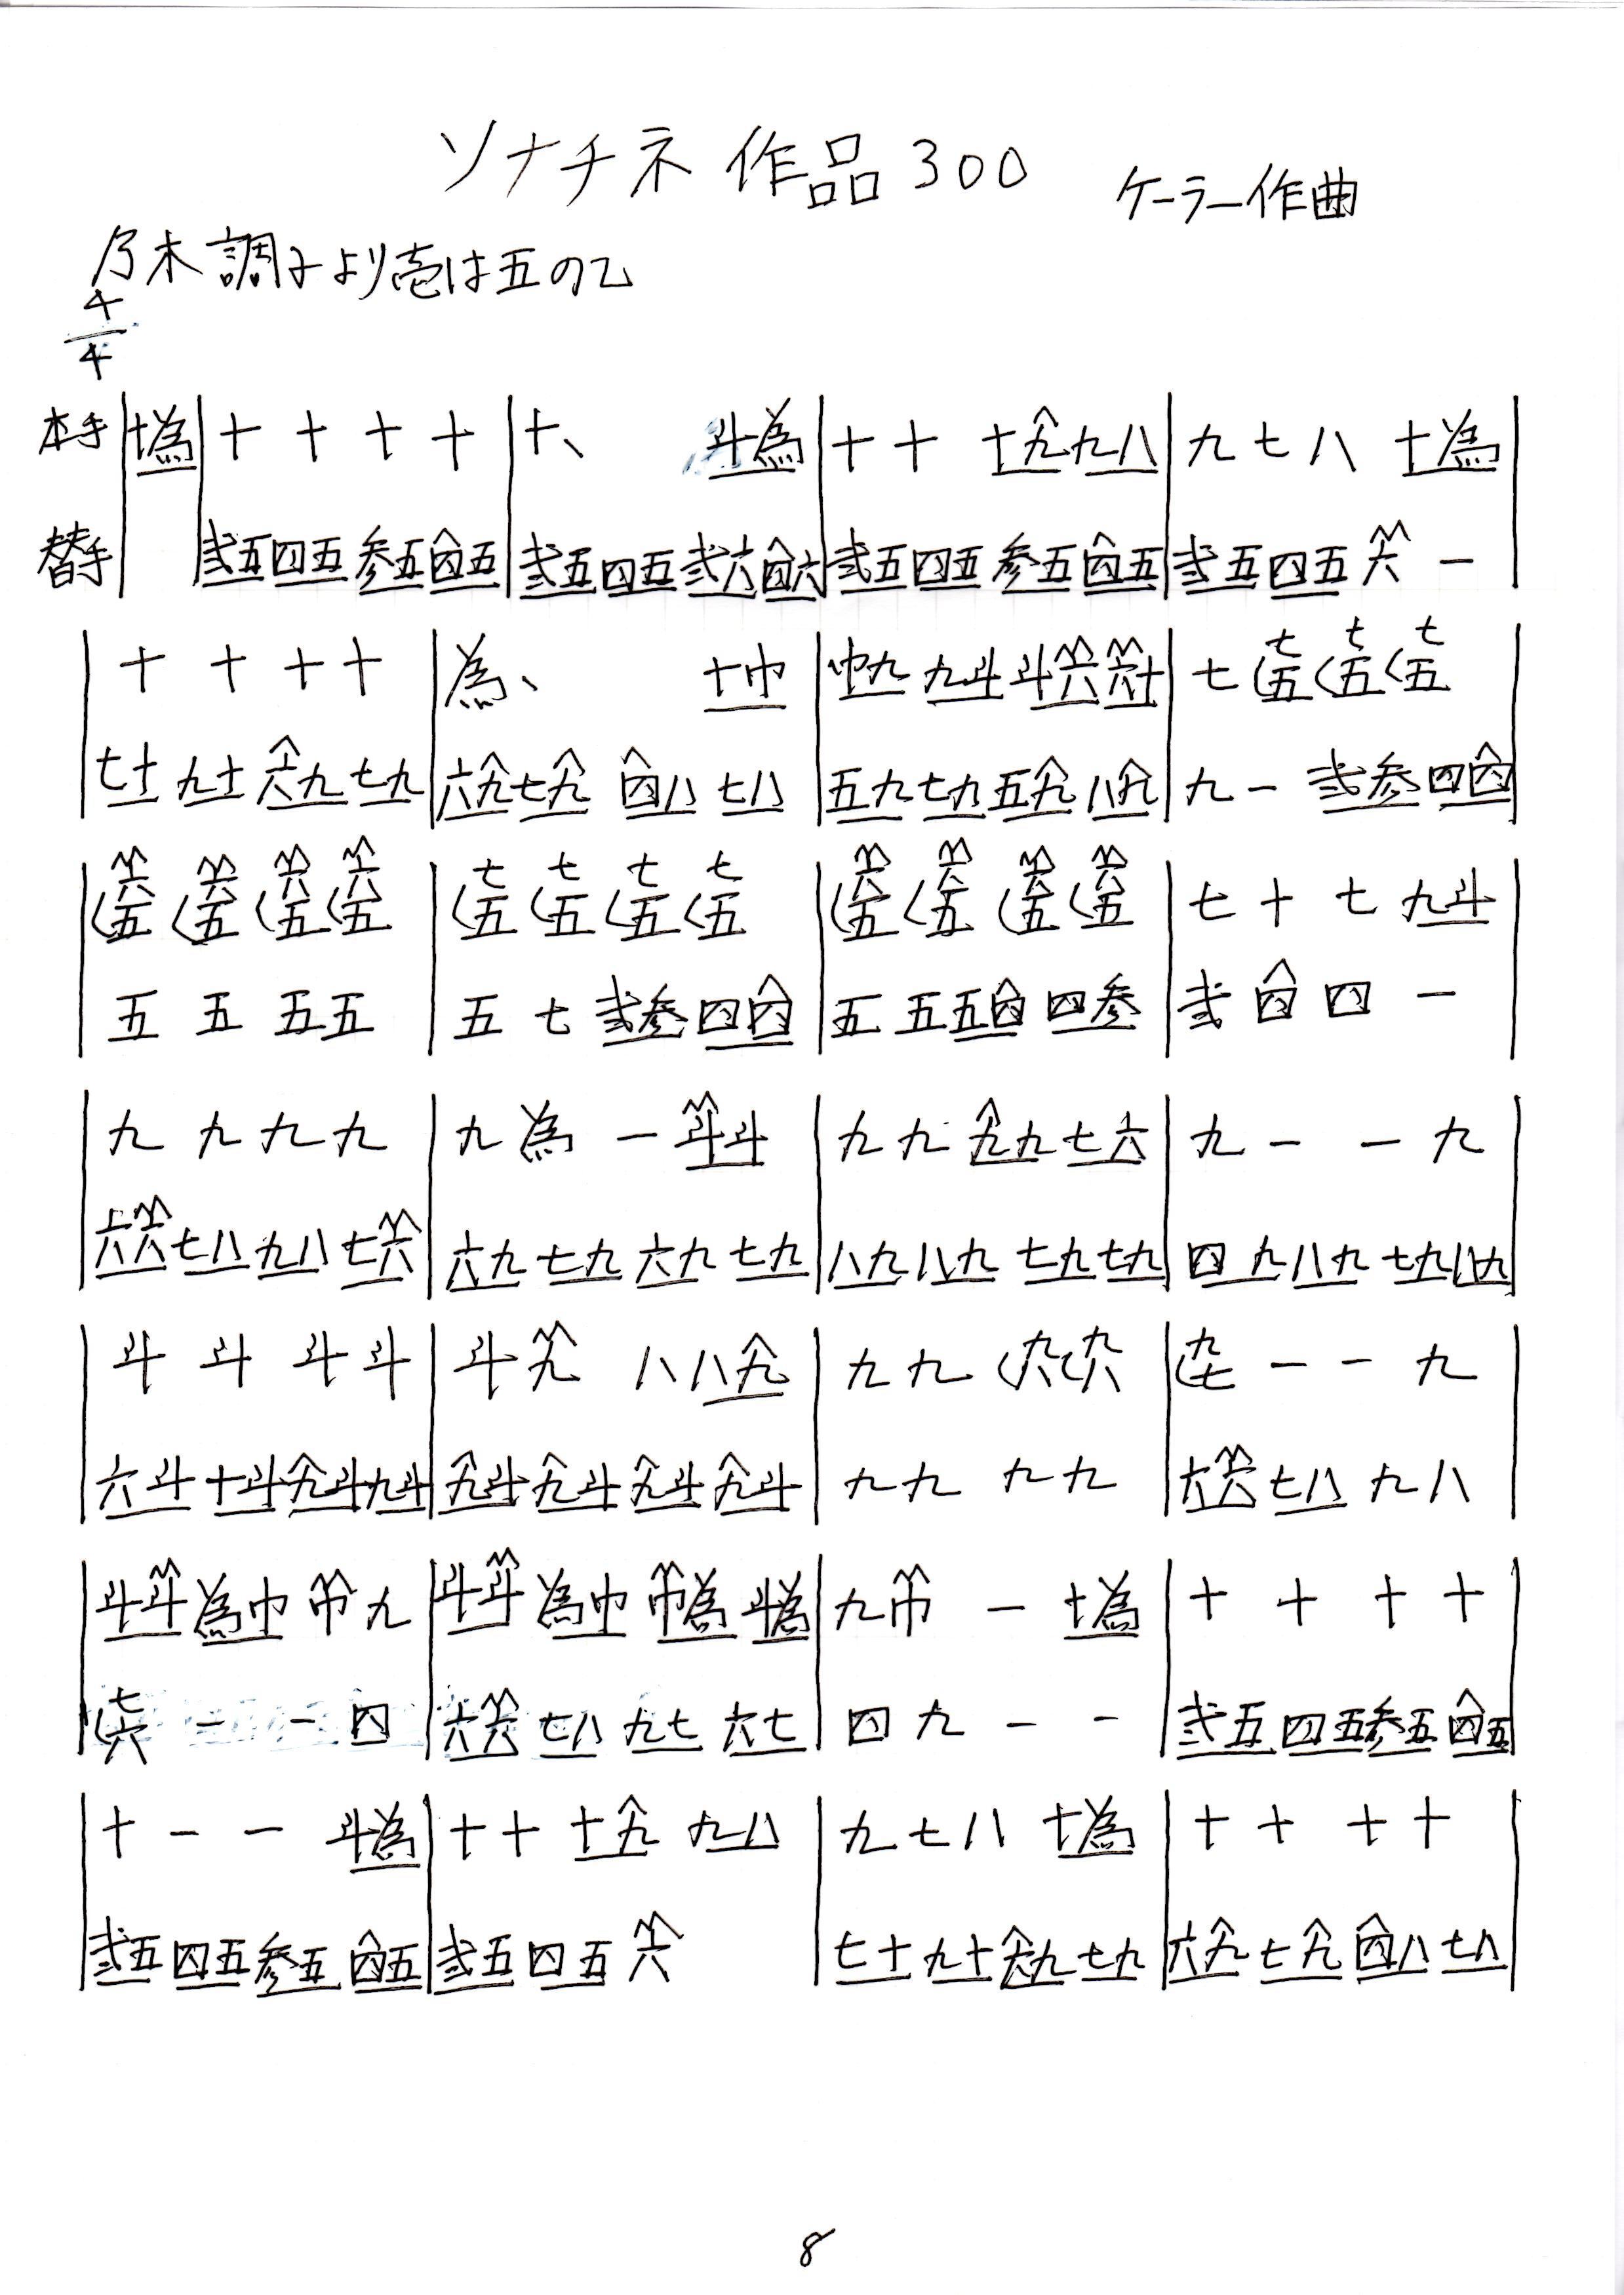 ソナチネ 作品300
ケーラー作曲
乃木調子より壱は五の乙
4
4
本手 十為 十 十 十 十 十、 斗為 十 十 十九九八 九 七 八 十為
替手 弐五四五参五四五 弐五四五弐六四六 弐五四五参五四五 弐五四五六 一
十 十 十 十 為、 十巾 巾九九斗斗六六十 七 七五 七五 七五
七十九十六九七九 六九七九四八七八 五九七九五九八九 九 一 弐参四四
六五 六五 六五 六五 七五 七五 七五 七五 六五 六五 六五 六五 七 十 七 九斗
五 五 五 五 五 七 弐参四四 五 五 五四四参 弐 四 四 一
九 九 九 九 九 為 一 斗斗 九 九 九九七六 九 一 一 九
六六七八九八七六 六九七九六九七九 八九八九七九七九 四九八九七九八九
斗 斗 斗 斗 斗 九 八 八九 九 九 九六 九六 九七 一 一 九
六斗十斗九斗九斗 九斗九斗九斗九斗 九 九 九 九 六六七八 九 八
斗斗為巾 巾 九 斗斗為巾巾為斗為 九 巾 一 十為 十 十 十 十
七六 一 一 四 六六七八九七六七 四 九 一 一 弐五四五参五四五
十 一 一 斗為 十 十 十九 九八 九 七 八 十為 十 十 十 十
弐五四五参五四五 弐五四五六 七十九十六九七九 六九七九四八七八
8